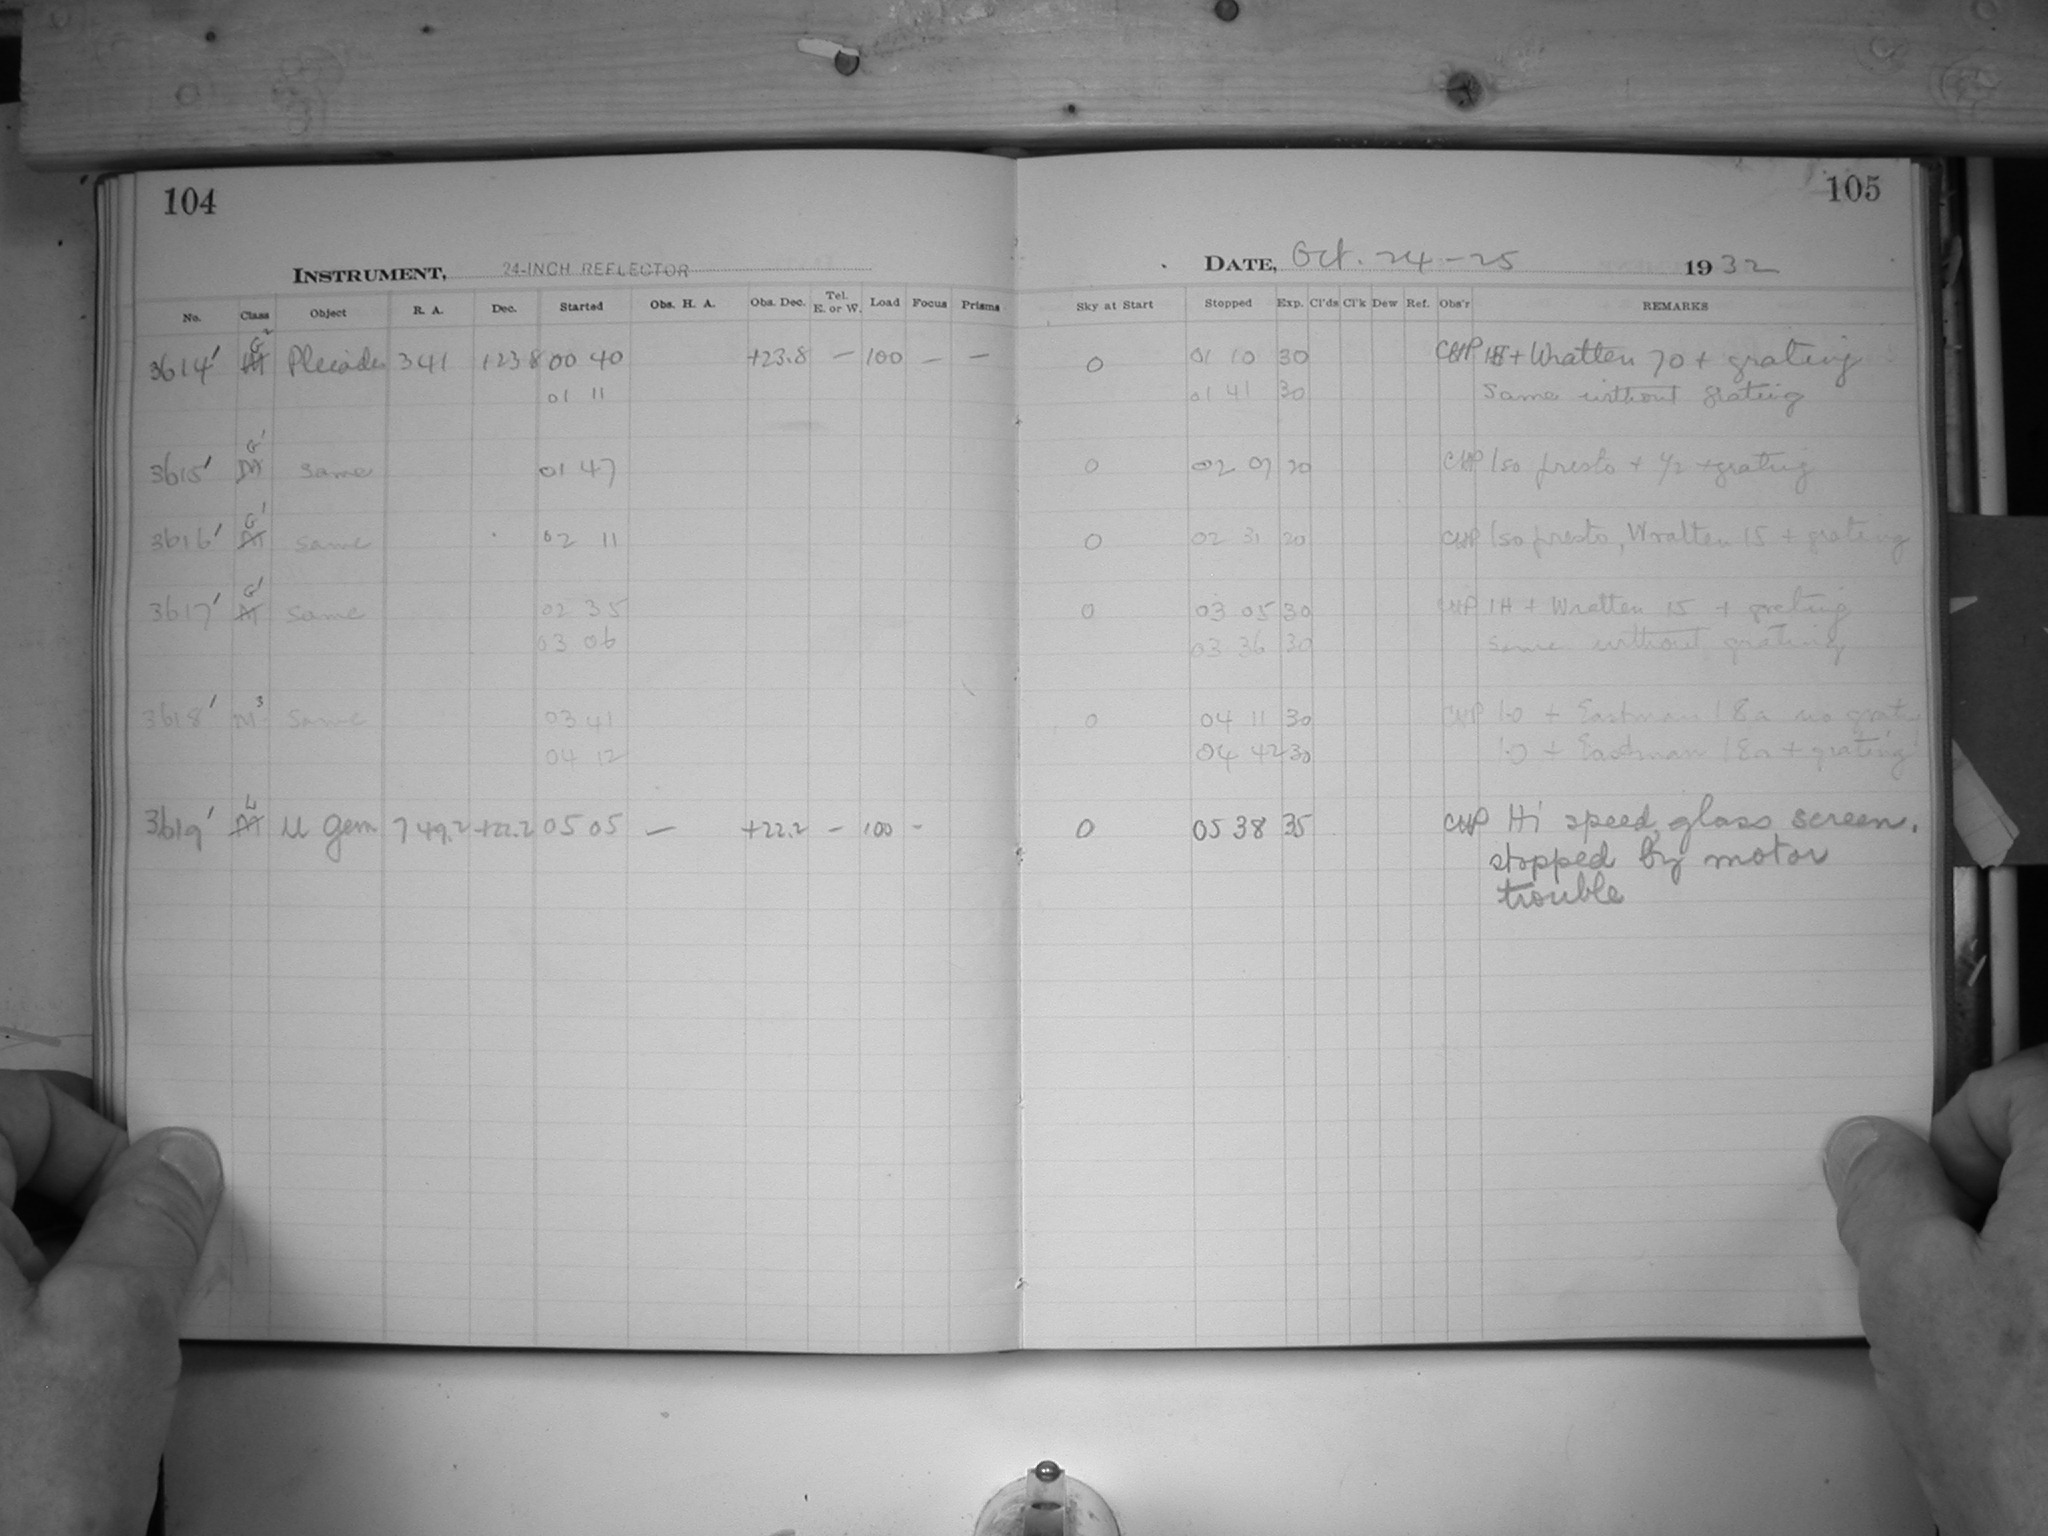 104
105
INSTRUMENT, 24-INCH REFLECTOR
DATE, Oct. 24-25 1932
No. Class Object R. A. Dec. Started Obs. H. A. Obs. Dec. Tel. E. or W. Load Focus Prisms Sky at Start Stopped Exp. Cl'ds Cl'k Dew Ref. Obs'r REMARKS
3614' G2 Pleiades 341 +23 8 00 40 +23.8 — 100 — — 0 01 10 30 CHP + Wratten 70 + grating
01 11 01 41 30 Same without grating
3615' G' same 01 47 0 02 07 20 CHP Iso presto + + grating
3616' G' same 02 11 0 02 31 20 CHP Iso presto, Wratten 15 + grating
3617' G' same 02 35 0 03 05 30 CHP 1H + Wratten 15 + grating
03 06 03 36 30 same without grating
3618' M3 same 03 41 0 04 11 30 CHP 1-0 + Eastman 18a no
04 12 04 42 30 1-0 + Eastman 18a + grating
3619' L U Gem 7 49.2 +22.2 05 05 — +22.2 — 100 - 0 05 38 35 CHP Hi speed, glass screen.
stopped by motor
trouble